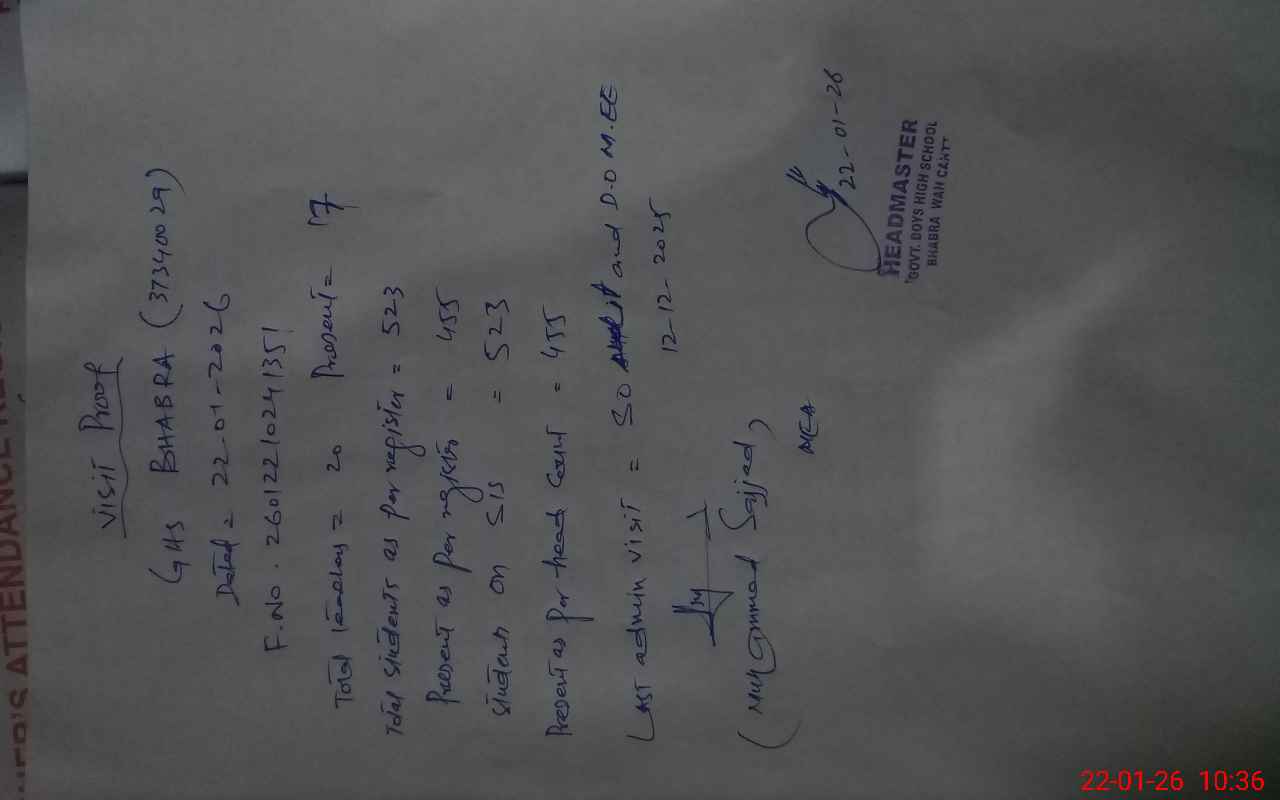 Visit Proof
GHS BHABRA (37340029)
Dated = 22-01-2026
F.No. 26012210241351
Total Teachers = 20 Present = 17
Total students as per register = 523
Present as per register = 455
Students on SIS = 523
Present as per head count = 455
Last admin visit = SO and D.O M.EE
12-12-2025
(Muhammad Sajjad)
MEA
22-01-26
HEADMASTER
GOVT. BOYS HIGH SCHOOL
BHABRA WAH CANTT
22-01-26 10:36